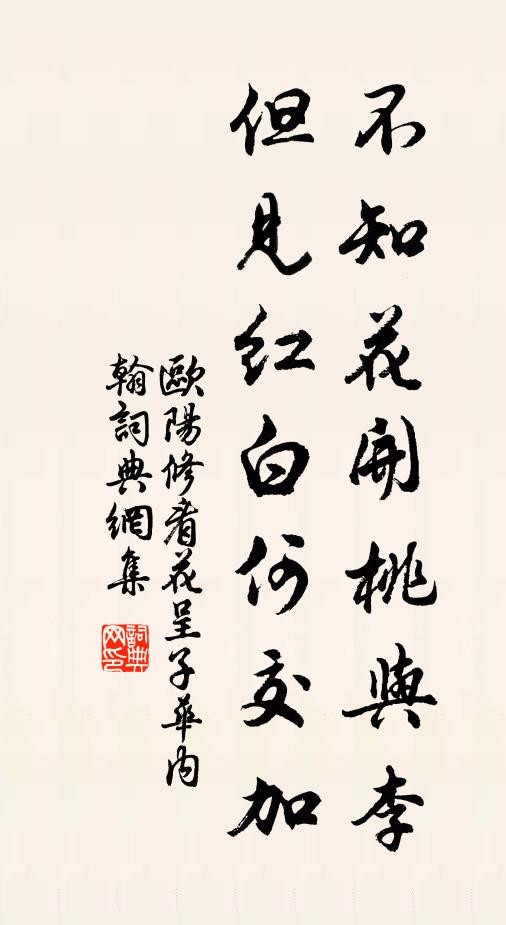 不知花開桃與李
但見紅白何交加
歐陽修看花呈子華內
翰詞典網集
詞典
网印